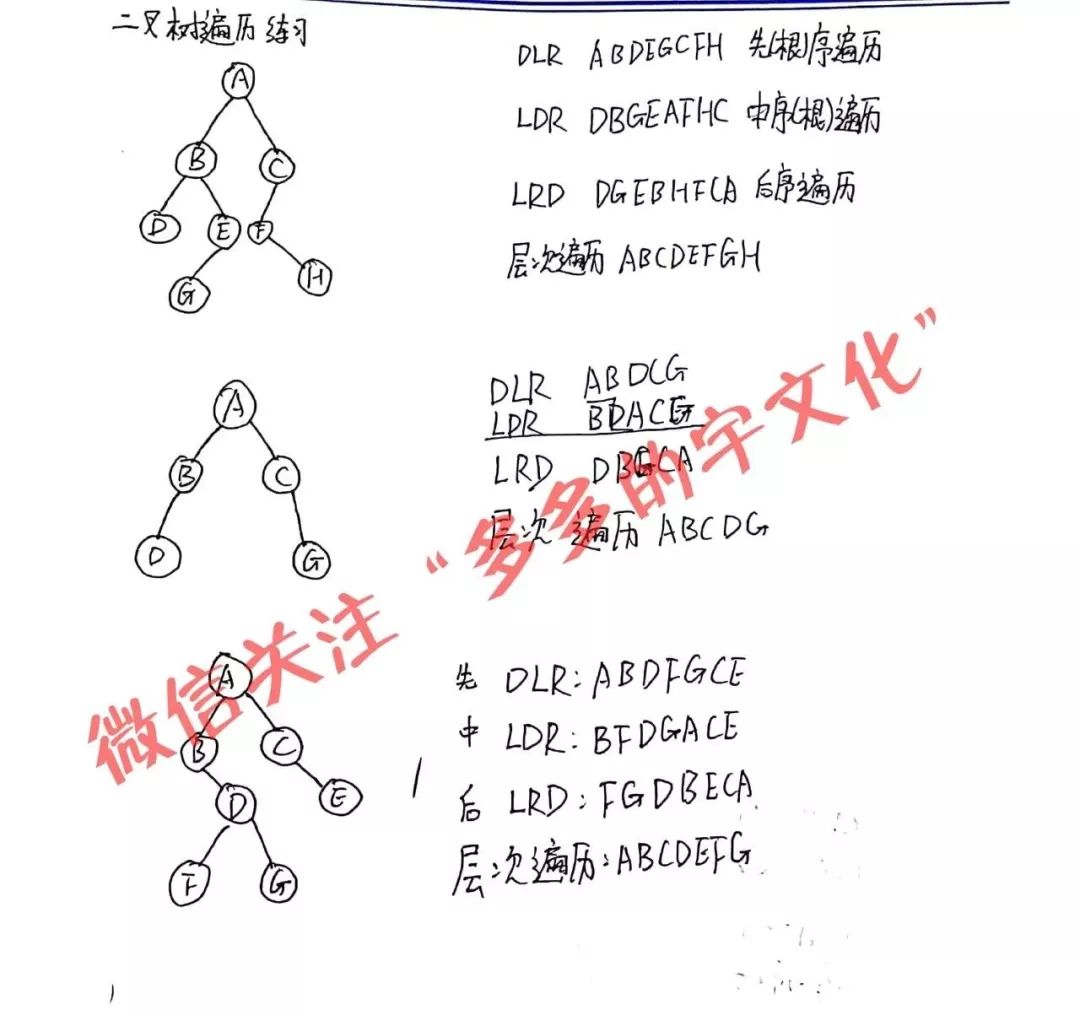 二叉树遍历练习
A
B C
D E F
G H
DLR ABDEGCFH 先(根)序遍历
LDR DBGEAFHC 中序(根)遍历
LRD DGEBHFCA 后序遍历
层次遍历 ABCDEFGH
A
B C
D G
DLR ABDCG
LDR BDACG
LRD DBGCA
层次遍历 ABCDG
A
B C
D E
F G
先 DLR: ABDFGCE
中 LDR: BFDGACE
后 LRD: FGDBECA
层次遍历: ABCDEFG
微信关注“多多的宇文化”